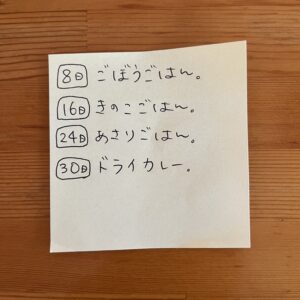 8日 ごぼうごはん。
16日 きのこごはん。
24日 あさりごはん。
30日 ドライカレー。